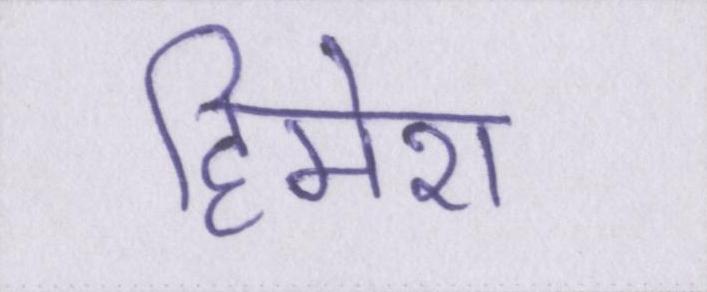 हिमेश